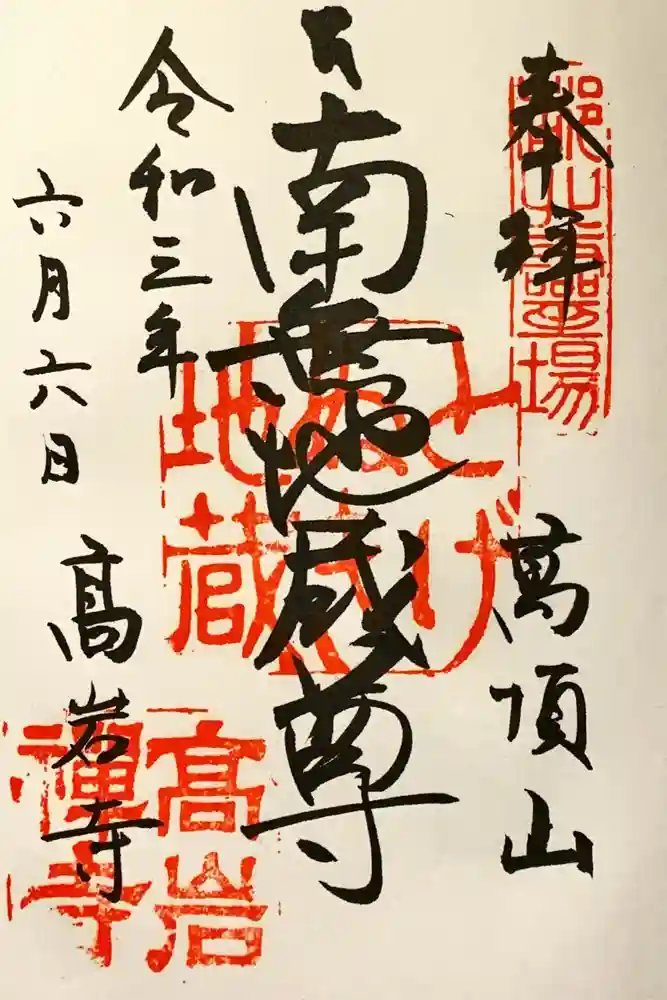 奉拝
萬頂山
南無地蔵尊
令和三年
六月六日
高岩寺
とげぬき
地蔵
高岩
禅寺